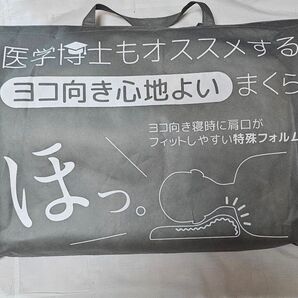 医学博士もオススメする
ヨコ向き心地よい まくら
ヨコ向き寝時に肩口が
フィットしやすい特殊フォルム
ほっ。